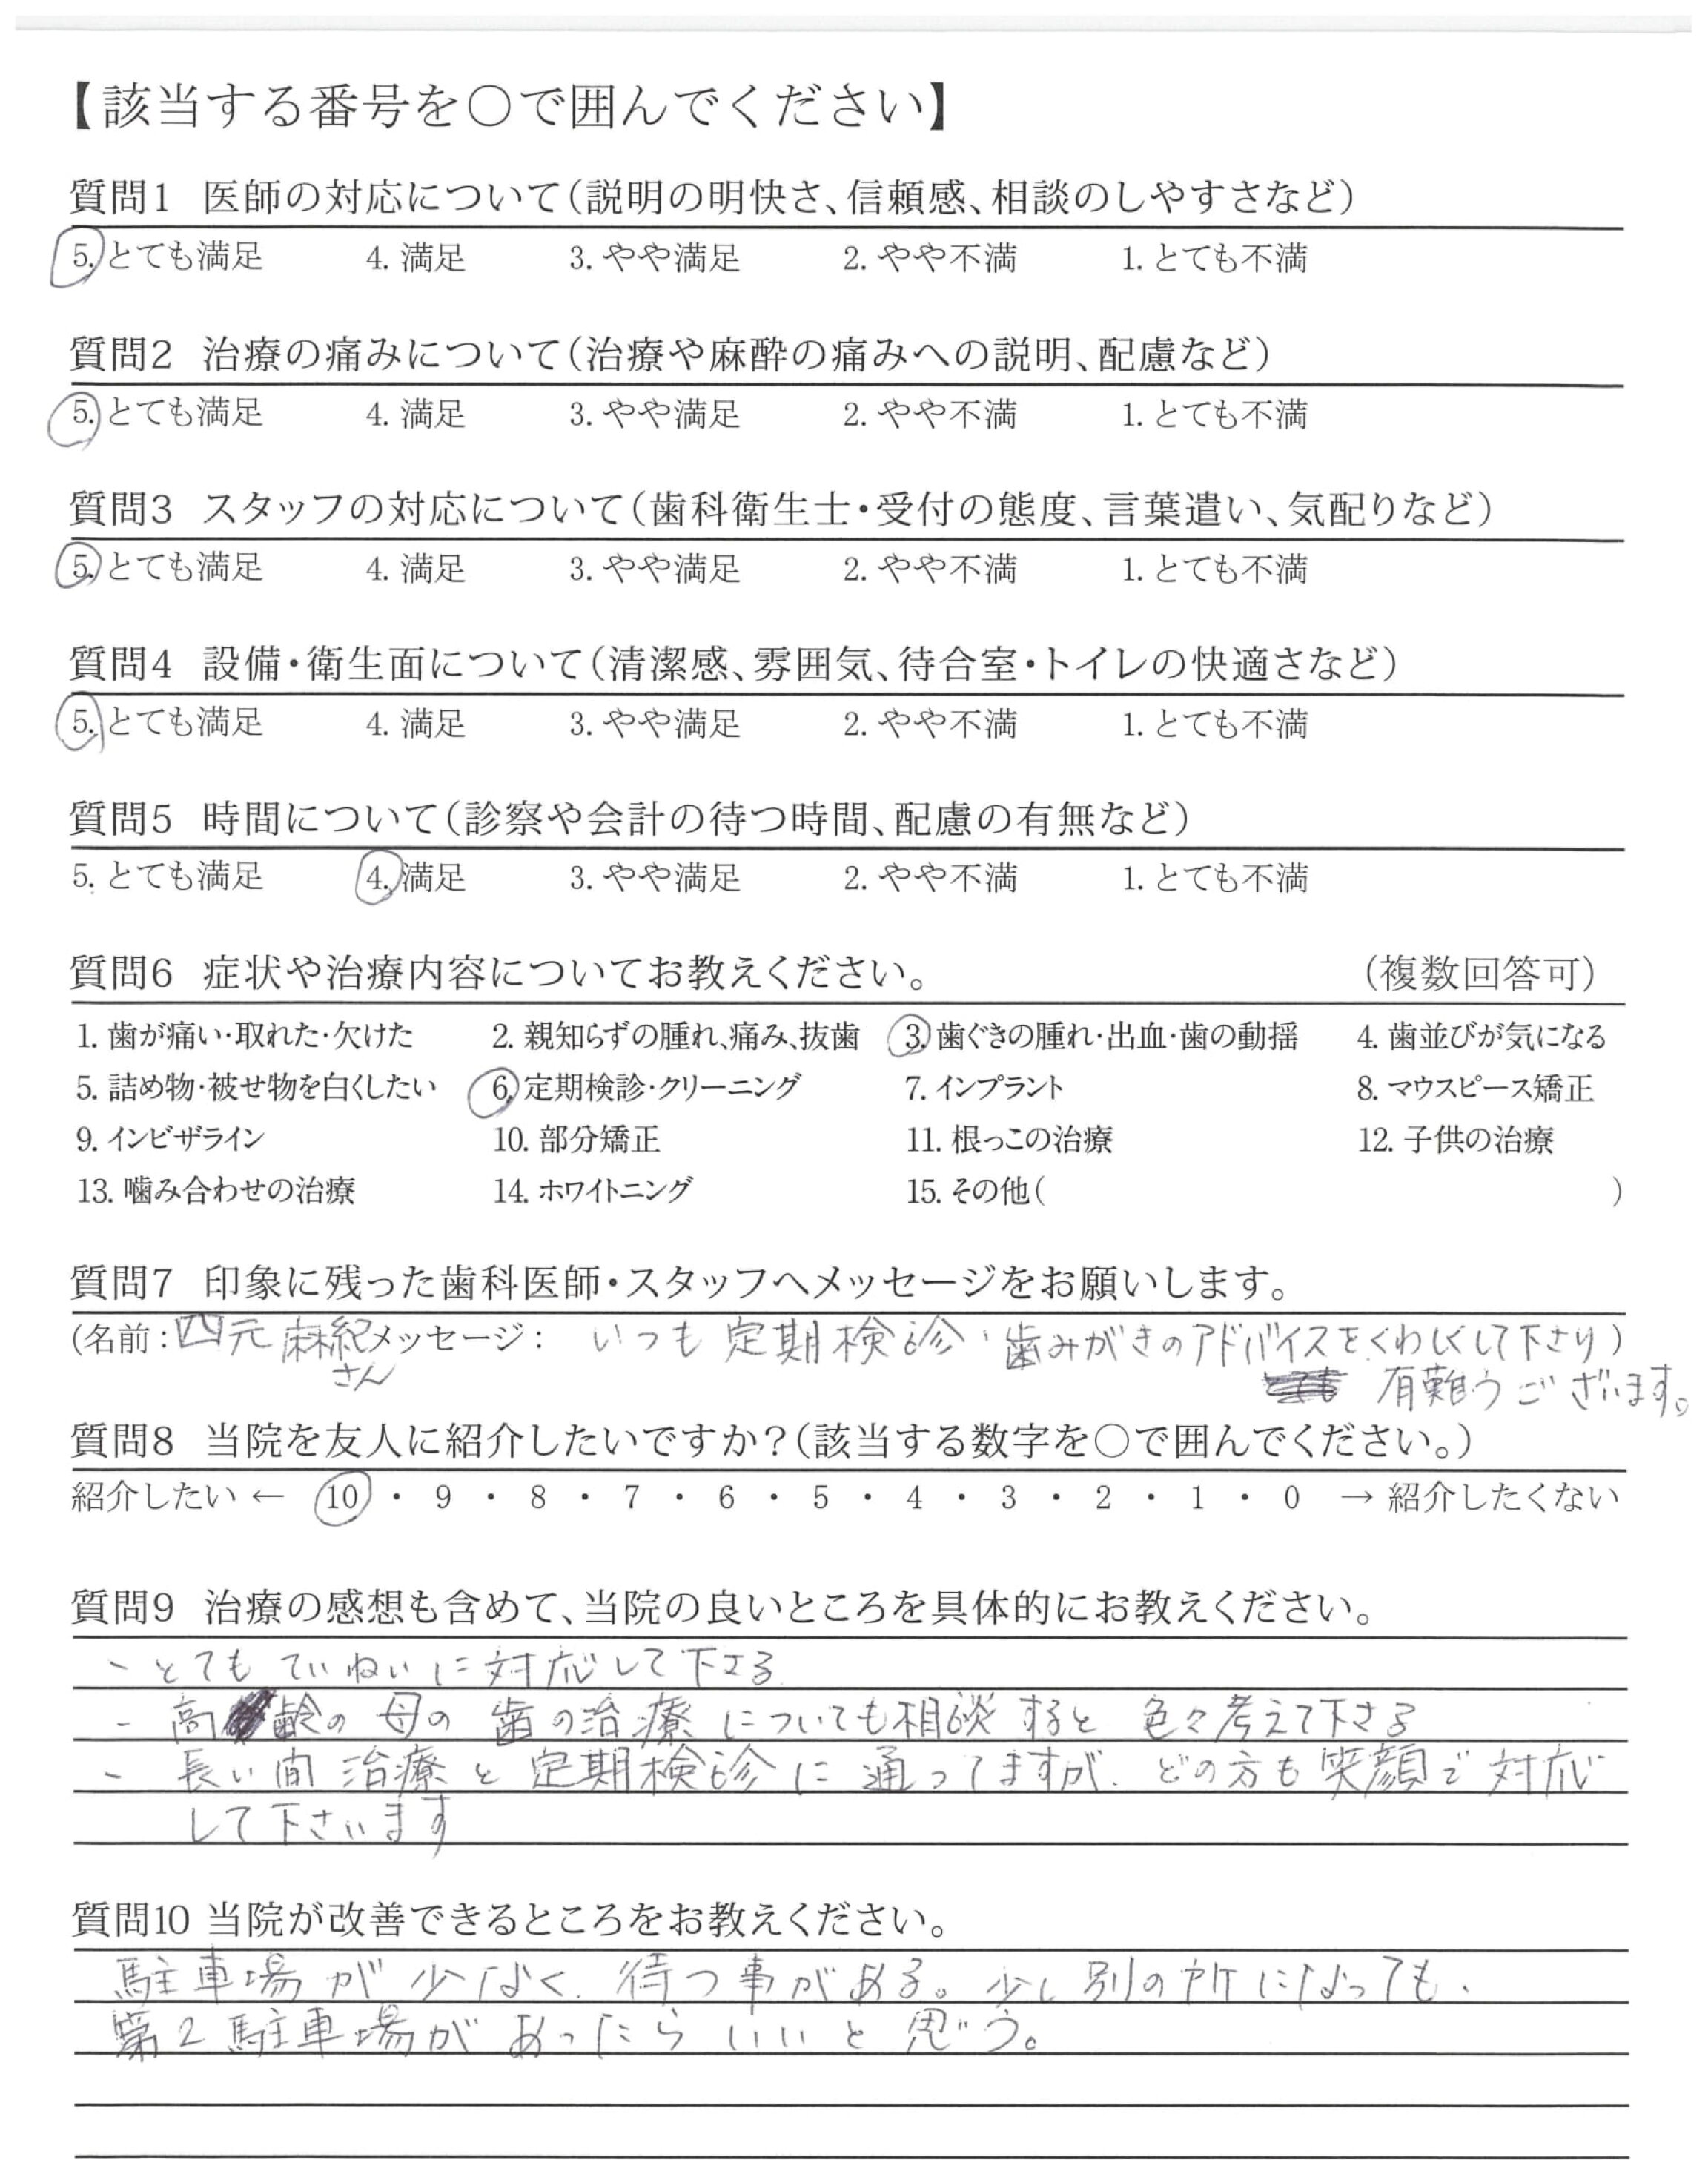 【該当する番号を○で囲んでください】
質問1 医師の対応について(説明の明快さ、信頼感、相談のしやすさなど)
5. とても満足 4. 満足 3. やや満足 2. やや不満 1. とても不満
質問2 治療の痛みについて(治療や麻酔の痛みへの説明、配慮など)
5. とても満足 4. 満足 3. やや満足 2. やや不満 1. とても不満
質問3 スタッフの対応について(歯科衛生士・受付の態度、言葉遣い、気配りなど)
5. とても満足 4. 満足 3. やや満足 2. やや不満 1. とても不満
質問4 設備・衛生面について(清潔感、雰囲気、待合室・トイレの快適さなど)
5. とても満足 4. 満足 3. やや満足 2. やや不満 1. とても不満
質問5 時間について(診察や会計の待つ時間、配慮の有無など)
5. とても満足 4. 満足 3. やや満足 2. やや不満 1. とても不満
質問6 症状や治療内容についてお教えください。 (複数回答可)
1. 歯が痛い・取れた・欠けた 2. 親知らずの腫れ、痛み、抜歯 3. 歯ぐきの腫れ・出血・歯の動揺 4. 歯並びが気になる
5. 詰め物・被せ物を白くしたい 6. 定期検診・クリーニング 7. インプラント 8. マウスピース矯正
9. インビザライン 10. 部分矯正 11. 根っこの治療 12. 子供の治療
13. 噛み合わせの治療 14. ホワイトニング 15. その他( )
質問7 印象に残った歯科医師・スタッフへメッセージをお願いします。
(名前:四元麻紀さん メッセージ: いつも定期検診、歯みがきのアドバイスをくわしくして下さり)
有難うございます。
質問8 当院を友人に紹介したいですか?(該当する数字を○で囲んでください。)
紹介したい ← 10 ・ 9 ・ 8 ・ 7 ・ 6 ・ 5 ・ 4 ・ 3 ・ 2 ・ 1 ・ 0 → 紹介したくない
質問9 治療の感想も含めて、当院の良いところを具体的にお教えください。
- とてもていねいに対応して下さる
- 高齢の母の歯の治療についても相談すると色々考えて下さる
- 長い間治療と定期検診に通ってますが、どの方も笑顔で対応
して下さいます
質問10 当院が改善できるところをお教えください。
駐車場が少なく、待つ事がある。少し別の所になっても、
第2駐車場があったらいいと思う。